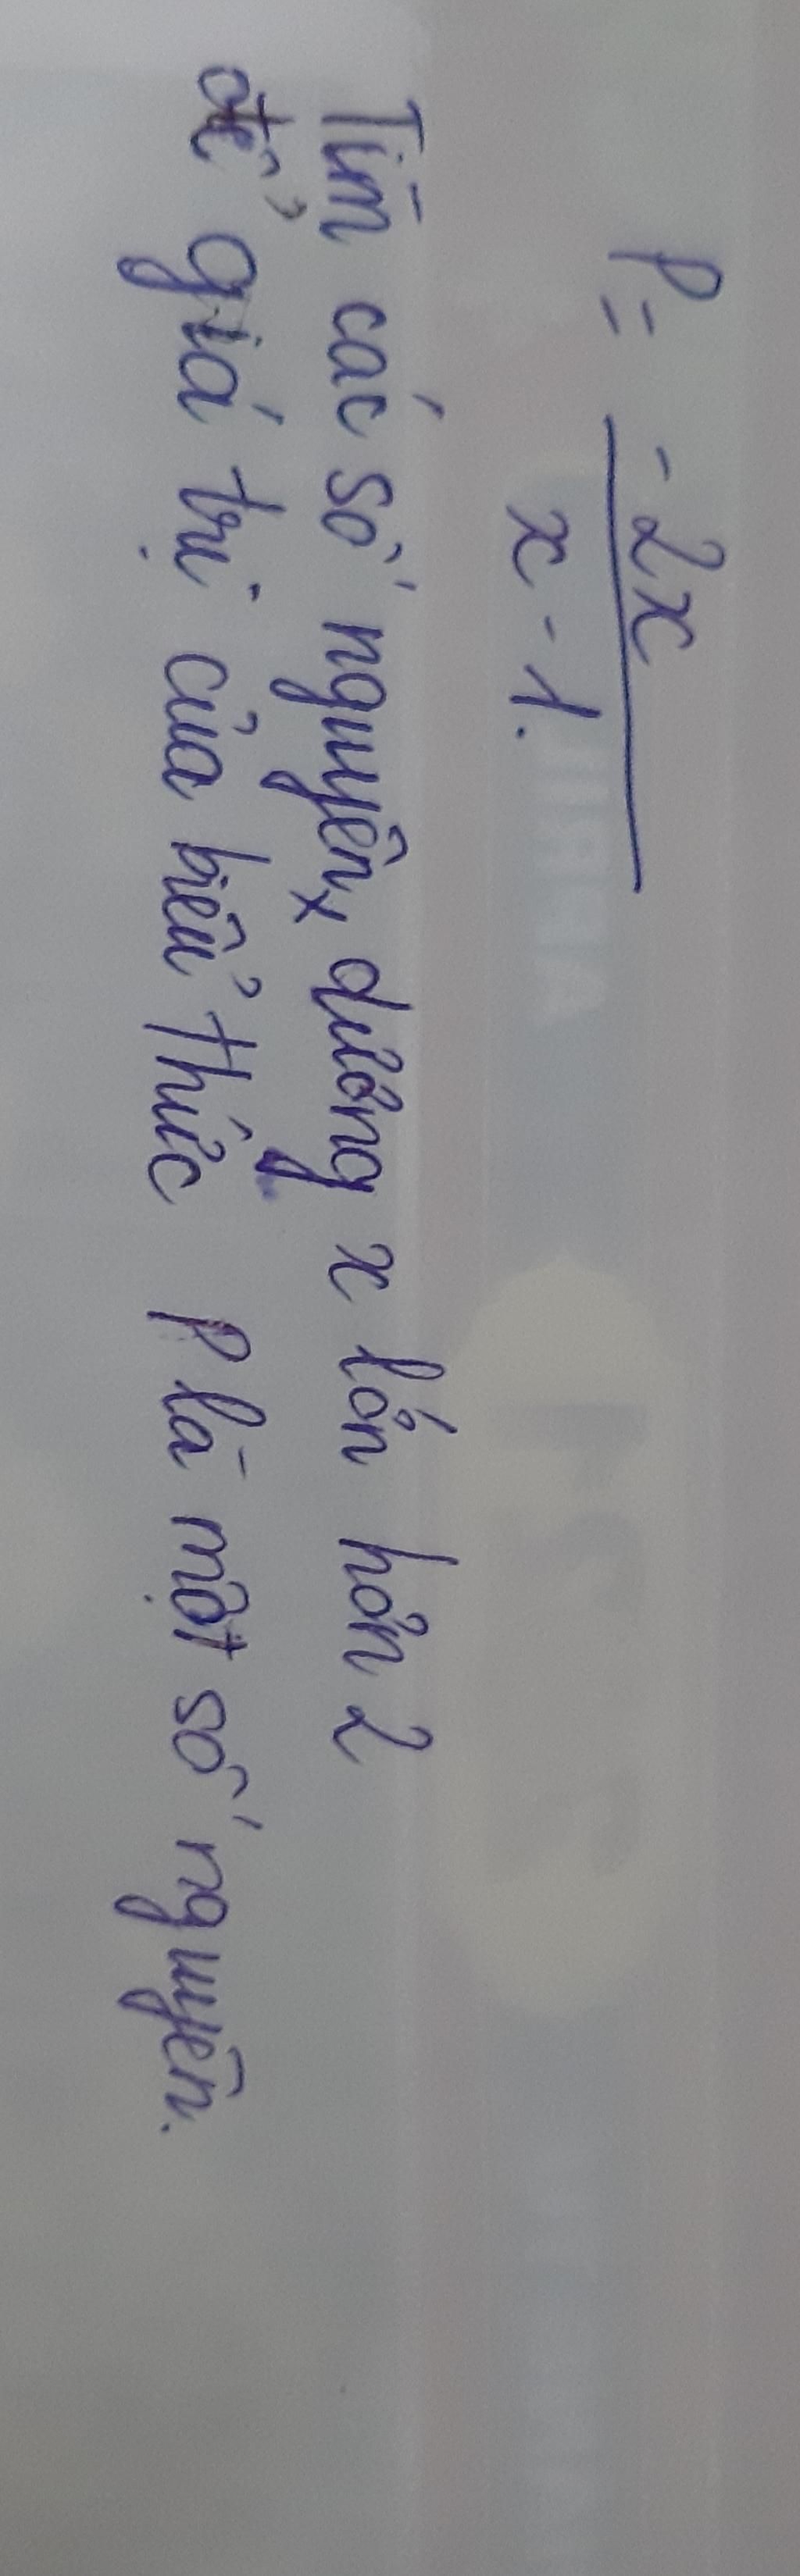 P = -2x / x - 1.
Tìm các số nguyên x dương x lớn hơn 2
để giá trị của biểu thức P là một số nguyên.